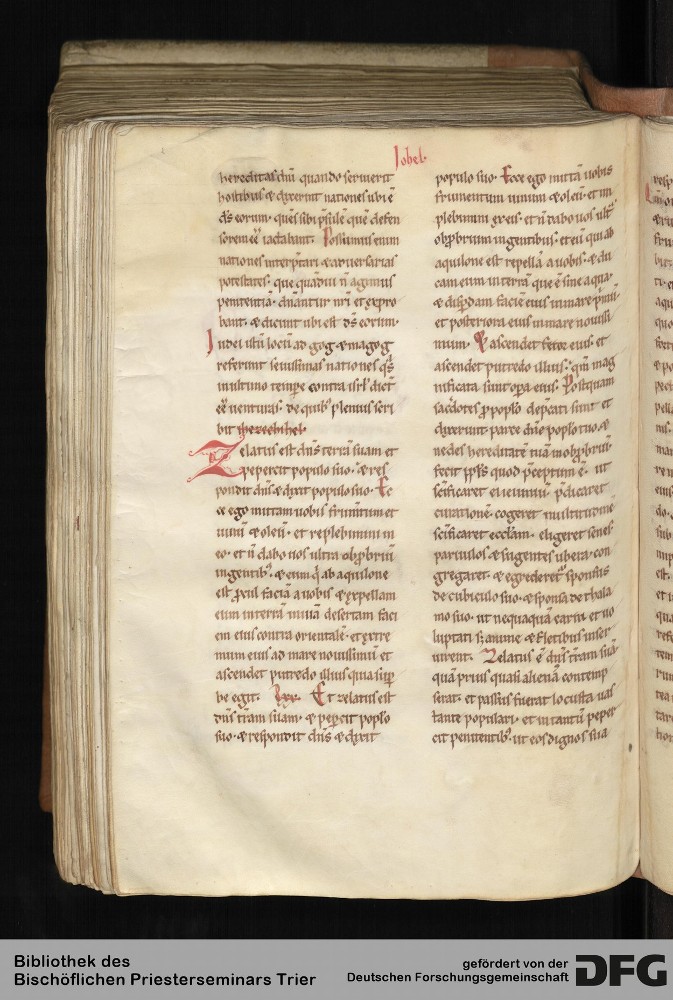 Iobel.
hereditas dñi quando seruierit
hostibus & dixerint nationes ubi ē
d̄s eorum. quē sibi p̄sulē quē defen
sorem eē iactabant. Possumus enim
nationes interp̄tari & aduersarias
potestates. que quādiu n̄ agimus
penitentiā. dn̄antur nr̄i et expro
bant. & dicunt ubi est d̄s eorum.
Iudei istū locū ad gog & magog
referunt seuissimas nationes
in ultimo tempe contra isrl dict
eē uenturas. de quib; plenius scri
bit
Zelatus est dn̄s terrā suam et
pepercit populo suo. & res
pondit dn̄s & dixit populo suo. Ec
ce ego mittam uobis frumtum et
uinū & oleū. et replebimini in
eo. et n̄ dabo uos ultra obp̄briū
in gentib;. & eum q̄ ab aquilone
est p̄cul faciā a uobis & expellam
eum in terrā inuiā desertam faci
em eius contra orientale. et extre
mum eius ad mare nouissimū et
ascendet putredo illius quia sup
be egit. lxx. Et zelatus est
dn̄s tr̄am suam. & pepcit poplo
suo. & respondit dn̄s & dixit
populo suo. Ecce ego mittā uobis
frumentum uinum & oleū. et im
plebimini ex eis. et n̄ dabo uos ult̄
obp̄brium in gentibus. et eū qui ab
aquilone est repellā a uobis. & du
cam eum in terrā que ē sine aqua.
& disp̄dam faciē eius in mare p̄mū.
et posteriora eius in mare nouissi
mum. & ascendet fetor eius. et
ascendet putredo illius. qm̄ mag
nificata sunt opa eius. Postquam
sacdotes p poplo dep̄cati sunt et
dixerunt parce dn̄e poplo tuo. &
ne des hereditatē tuā in obp̄briū.
fecit ipsis quod p̄ceptum ē. ut
sc̄ificaret ieiuniū. p̄dicaret
curationē. cogeret multitudinē
sc̄ificaret eccl̄am. eligeret senes
paruulos & sugentes ubera. con
gregaret. & egrederet̄ sponsus
de cubiculo suo. & sponsa de thala
mo suo. ut nequaquā carni. et uo
luptati s; anime & fletibus inser
uirent. Zelatus ē dn̄s tr̄am suā.
quā prius quasi alienā contemp
serat. et passus fuerat locusta uas
tante populari. et in tantū peper
cit penitentib;. ut eos dignos sua
Bibliothek des
Bischöflichen Priesterseminars Trier
gefördert von der
Deutschen Forschungsgemeinschaft
DFG